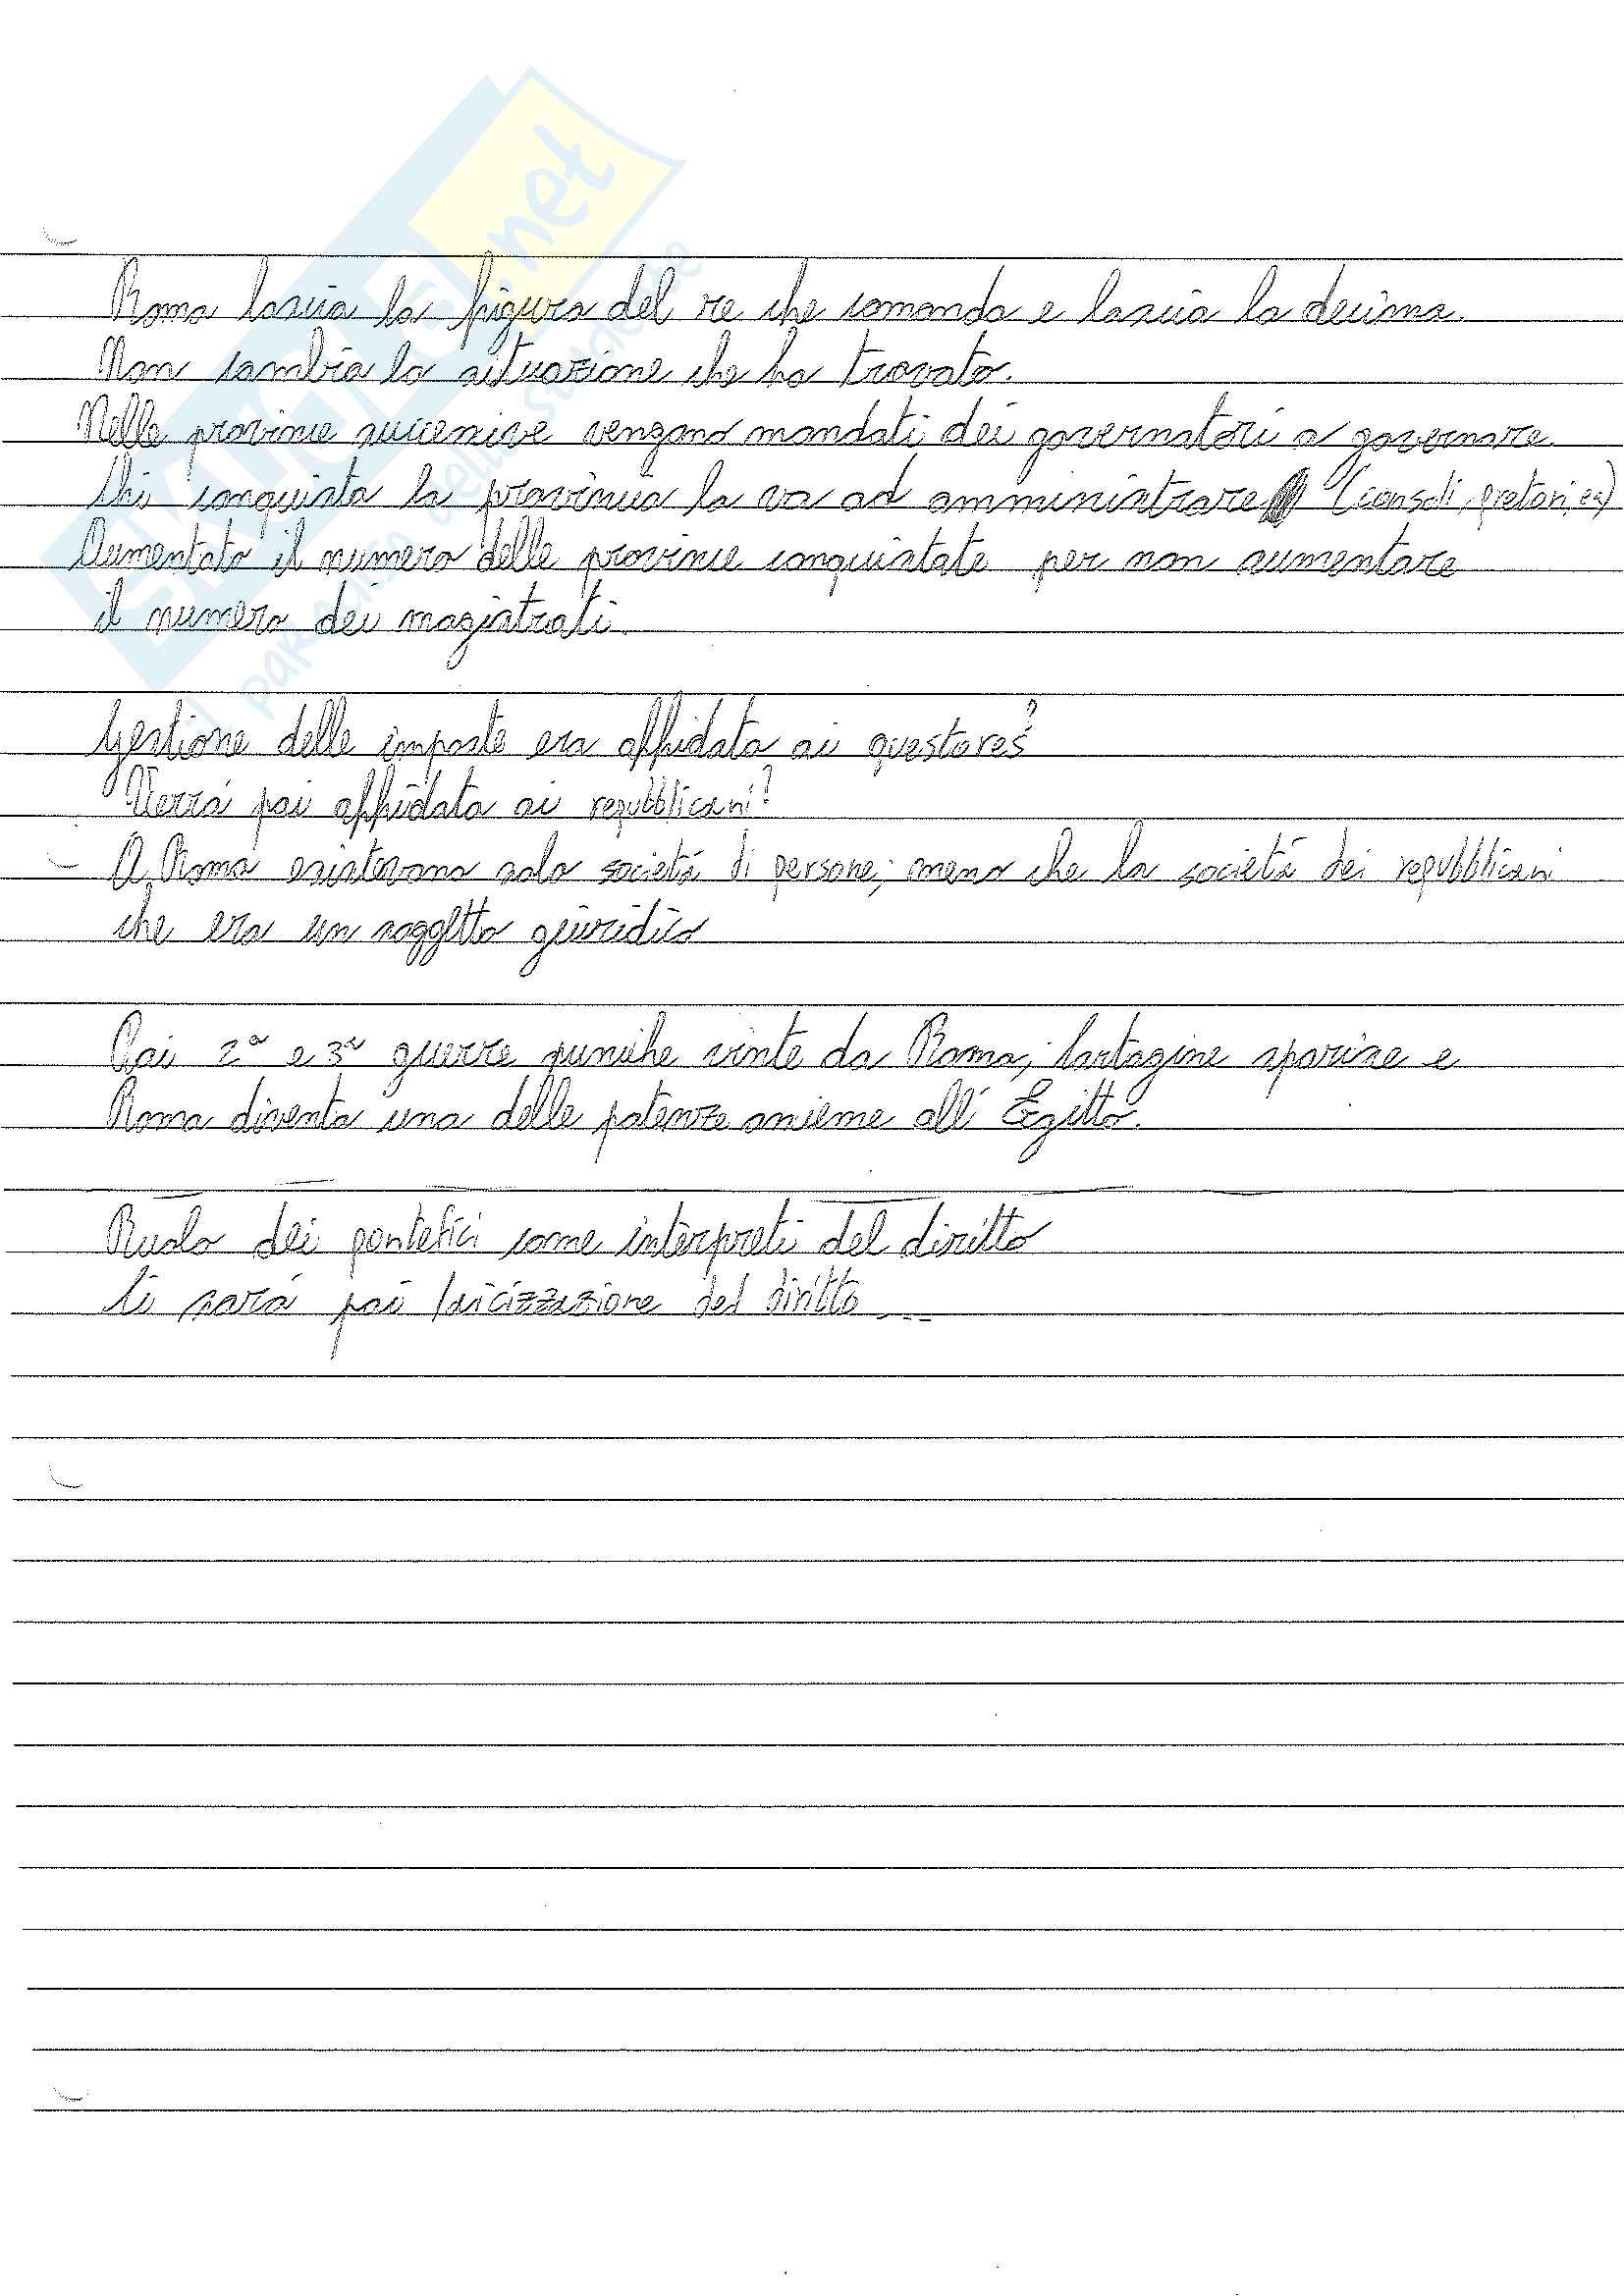 Roma lascia la figura del re che comanda e lascia la decima.
Non cambia la situazione che ha trovato.
Nelle provincie successive vengono mandati dei governatori a governare.
Chi conquista la provincia la va ad amministrare (consoli, pretori, ec)
Aumentato il numero delle provincie conquistate per non aumentare
il numero dei magistrati.
Gestione delle imposte era affidata ai questores?
Verrá poi affidata ai repubblicani?
A Roma esistevano solo societá di persone; meno che la societá dei repubblicani
che era un soggetto giuridico
Poi 2ª e 3ª guerre puniche vinte da Roma; Cartagine sparisce e
Roma diventa una delle potenze assieme all'Egitto.
Ruolo dei pontefici come interpreti del diritto
Ci sará poi laicizzazione del diritto ---
SKUOLA.net
il paradiso dello studente